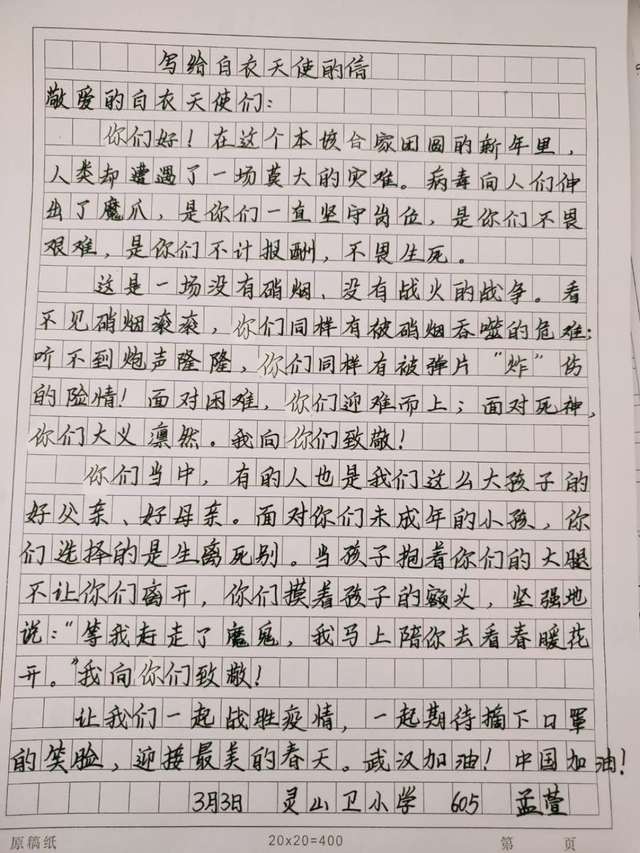 写给白衣天使的信
敬爱的白衣天使们：
你们好！在这个本该合家团圆的新年里，
人类却遭遇了一场莫大的灾难。病毒向人们伸
出了魔爪，是你们一直坚守岗位，是你们不畏
艰难，是你们不计报酬，不畏生死。
这是一场没有硝烟、没有战火的战争。看
不见硝烟滚滚，你们同样有被硝烟吞噬的危难；
听不到炮声隆隆，你们同样有被弹片“炸”伤
的险情！面对困难，你们迎难而上；面对死神，
你们大义凛然。我向你们致敬！
你们当中，有的人也是我们这么大孩子的
好父亲、好母亲。面对你们未成年的小孩，你
们选择的是生离死别。当孩子抱着你们的大腿
不让你们离开，你们摸着孩子的额头，坚强地
说：“等我赶走了魔鬼，我马上陪你去看春暖花
开。”我向你们致敬！
让我们一起战胜疫情，一起期待摘下口罩
的笑脸，迎接最美的春天。武汉加油！中国加油！
3月3日 灵山卫小学 605 孟萱
原稿纸 20×20=400 第 页